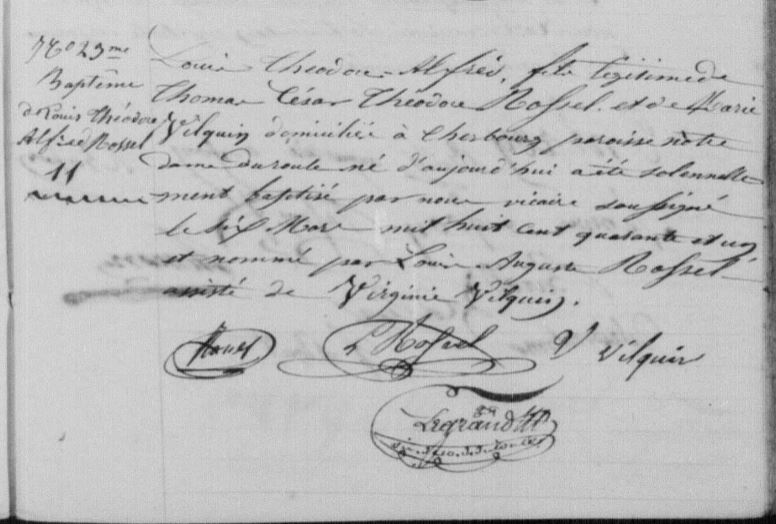 N° 23me
Baptême
de Louis Théodore
Alfred Rossel
11
Louis Théodore Alfred, fils légitime de
Thomas César Théodore Rossel et de Marie
Vilquin domiciliés à Cherbourg paroisse notre
dame du roule né d'aujourd'hui a été solennelle-
ment baptisé par nous vicaire soussigné
le six Mars mil huit cent quarante et un
et nommé par Louis Auguste Rossel
assisté de Virginie Vilquin.
L Rossel
V Vilquin
Legrand